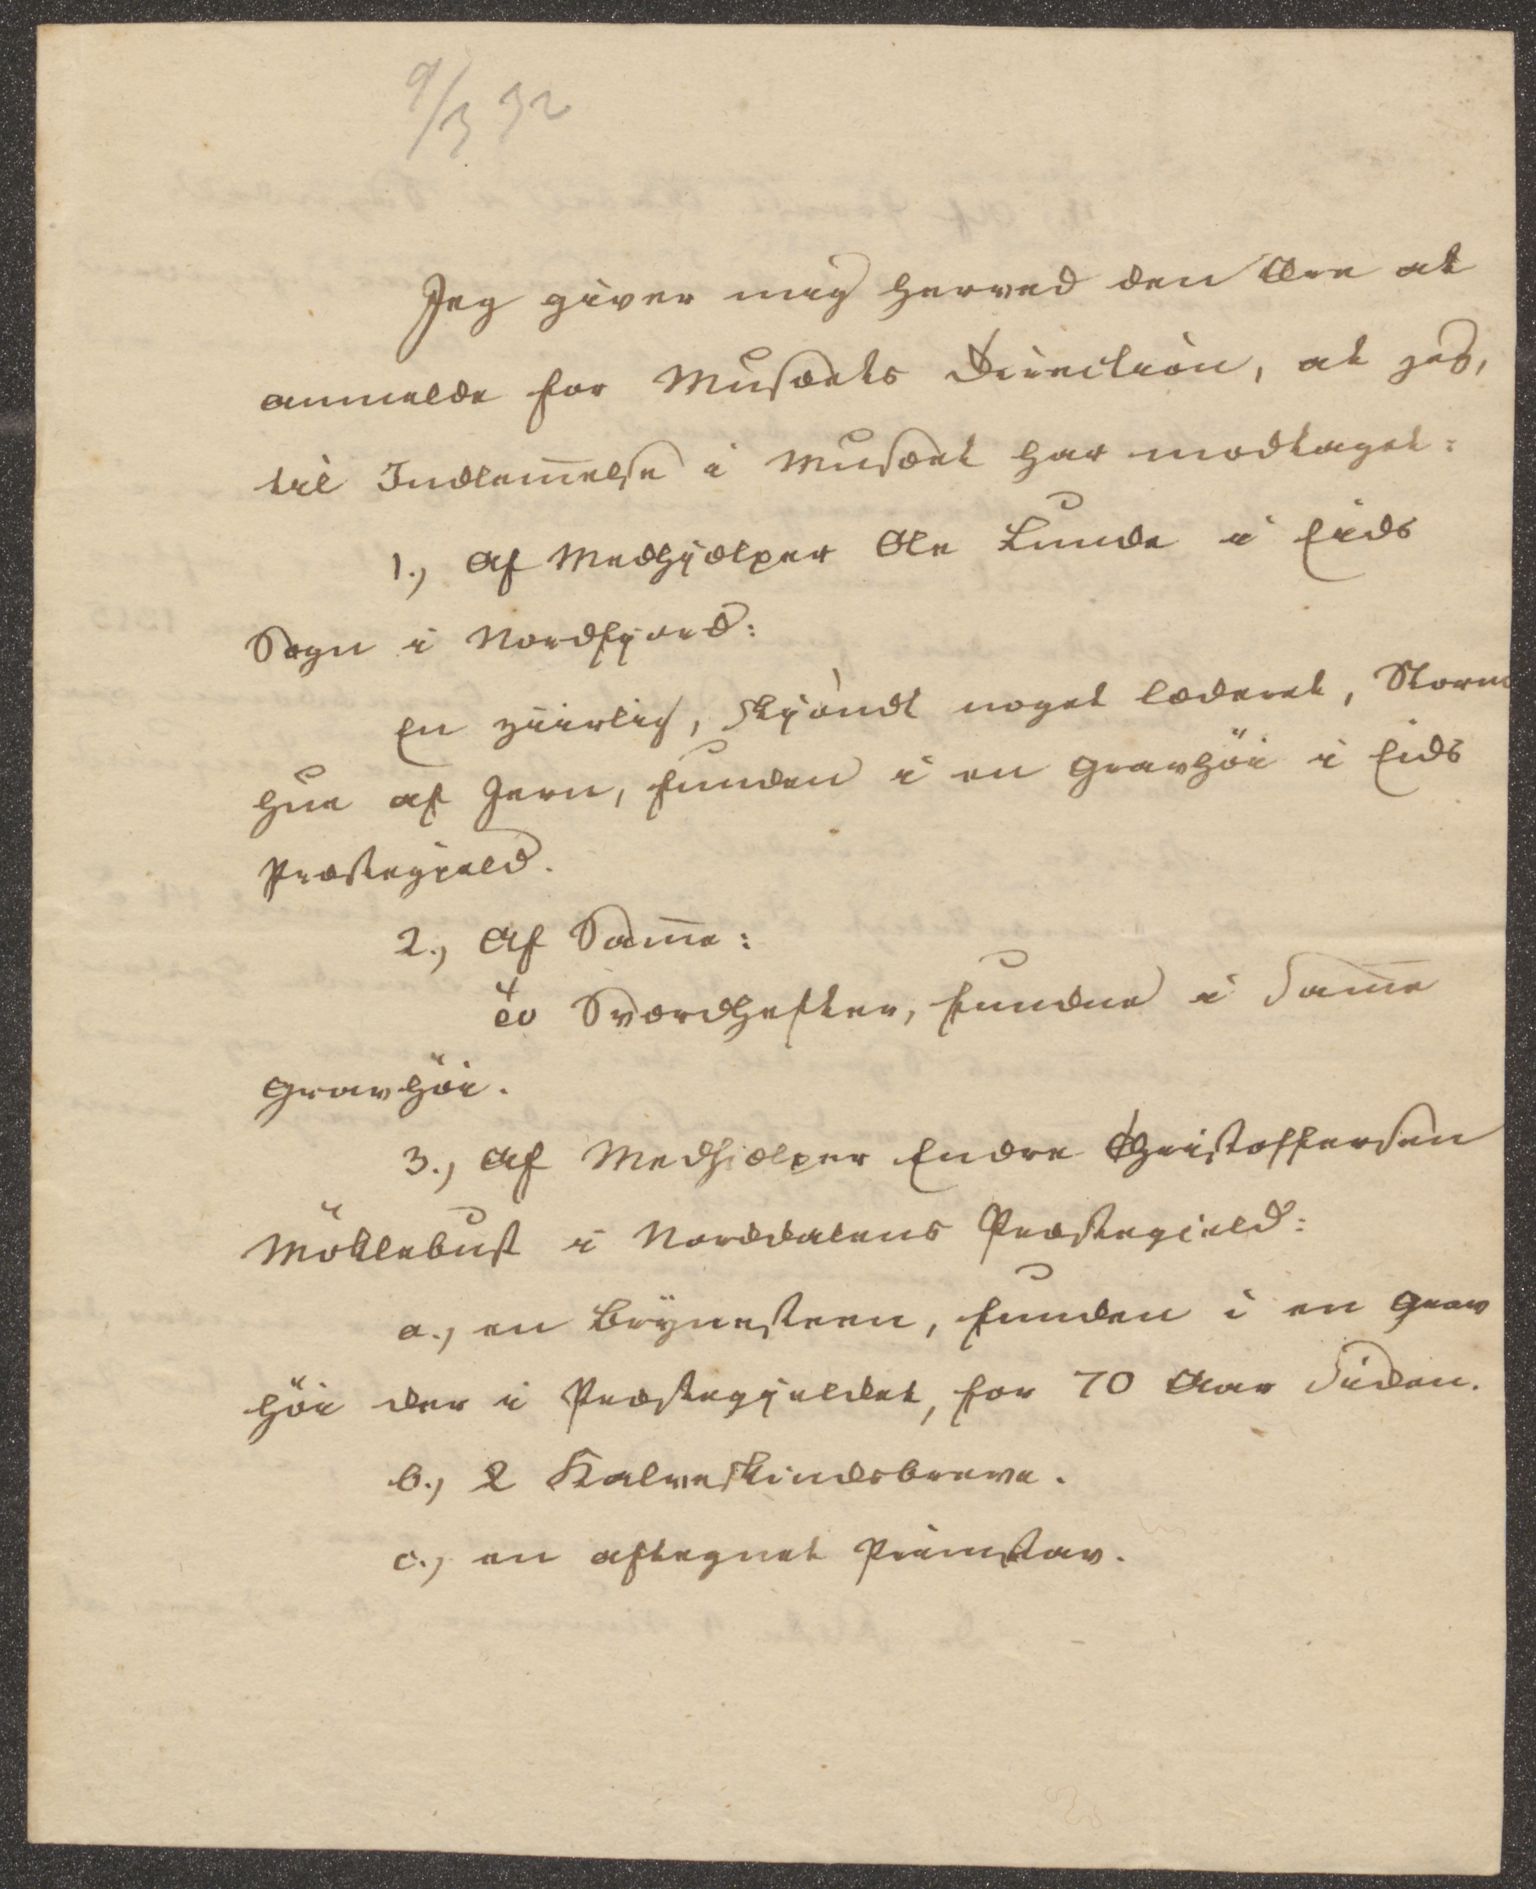 9/3 32
Jeg giver mig herved den Ære at
anmelde for Musæets Direction, at jeg,
til Indlem̅else i Musæet har modtaget:
1., Af Medhjælper Ole Lunde i Eids
Sogn i Nordfjord:
En ziirlig, skjöndt noget læderet, Storm
hue af Jern, funden i en Gravhöi i Eids
Præstegjeld.
2., Af Sam̅e:
to Sværdhefter, fundne i sam̅e
Gravhöi.
3., Af Medhjælper Endre Christoffersen
Möllebust i Norddalens Præstegield:
a., en Brynesteen, funden i en Grav
höi der i Præstegjeldet, for 70 Aar siden.
b., 2 Kalveskindsbreve.
c., en aftegnet Primstav.